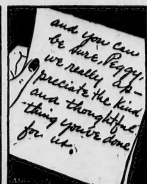 and you can
be sure, Peggy,
we really ap-
preciate the kind
and thoughtful
thing you've done
for us.